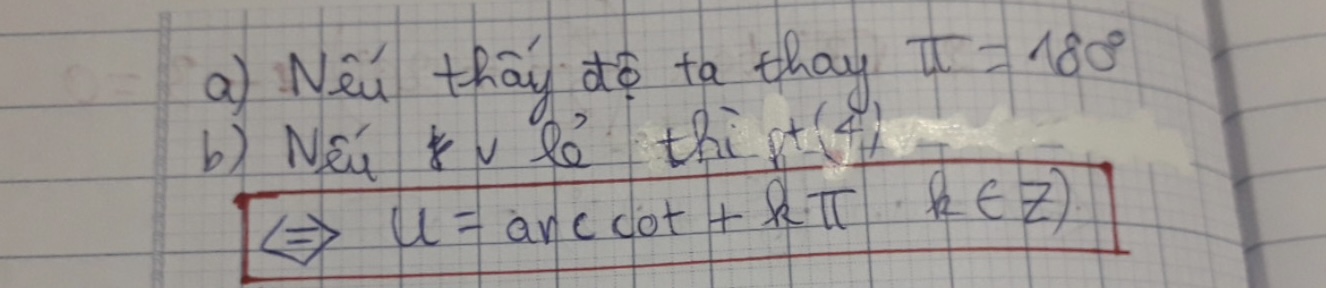 a) Nếu thấy độ ta thay π = 180°
b) Nếu v lẻ thì pt (4)
⇔ u = arc cot + kπ k ∈ Z)